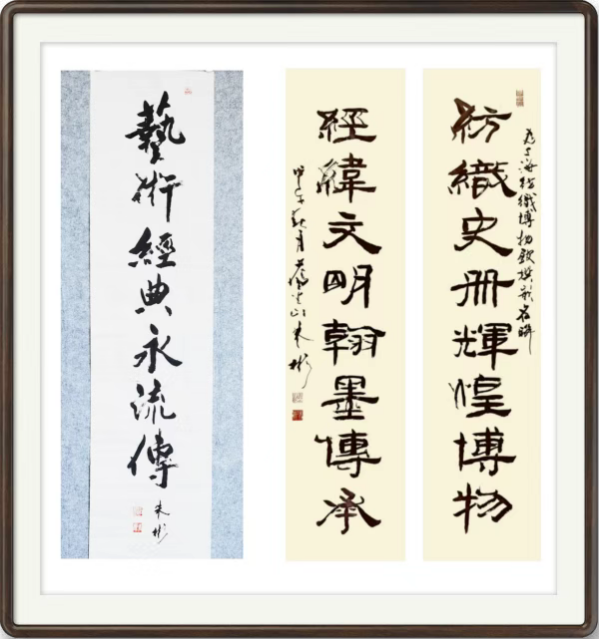 為上海紡織博物館撰嵌名聯
紡織史冊輝煌博物
經緯文明翰墨傳承
甲午秋月
朱彬
藝術經典永流傳
朱彬